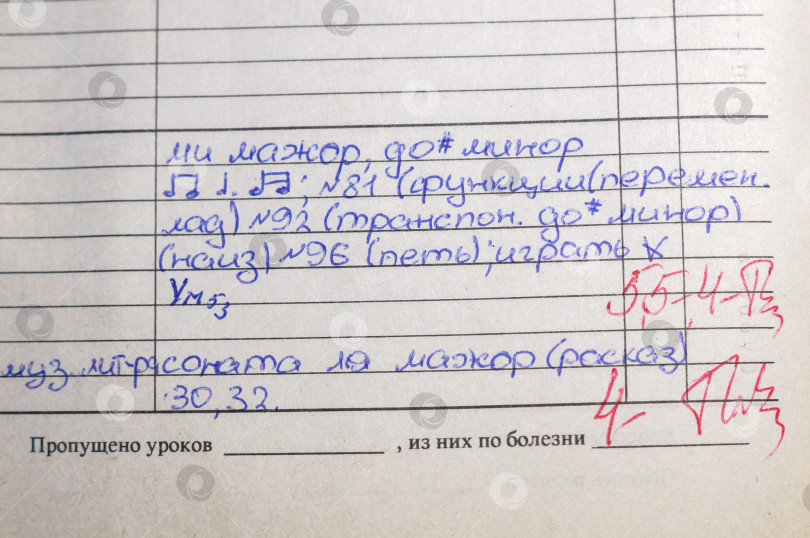 ми мажор, до# минор
♫ ♩. ♫; №81 (функции(перемен.
лад) №92 (транспон. до# минор)
(наиз) №96 (петь); играть
Ум53
5 5- 4-
муз. лит-ра соната ля мажор (рассказ)
30, 32.
4-
Пропущено уроков ____________ , из них по болезни ____________